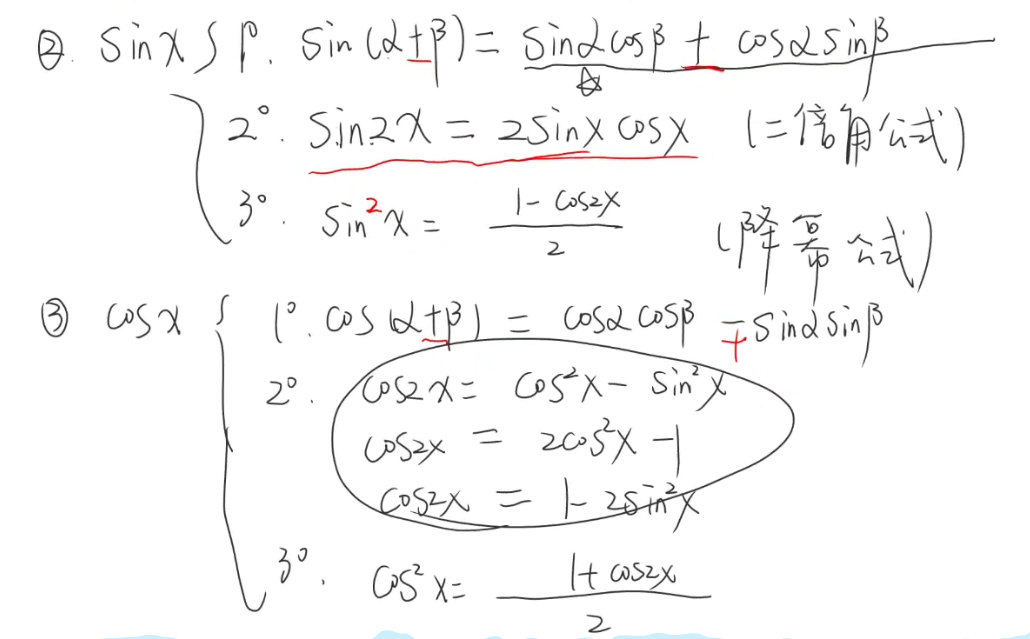 ② sinx { 1°. sin(α±β) = sinαcosβ ± cosαsinβ
☆
2°. sin2x = 2sinxcosx (二倍角公式)
3°. sin²x = (1-cos2x)/2 (降幂公式)
③ cosx { 1°. cos(α±β) = cosαcosβ ∓ sinαsinβ
2°. cos2x = cos²x - sin²x
cos2x = 2cos²x - 1
cos2x = 1 - 2sin²x
3°. cos²x = (1+cos2x)/2